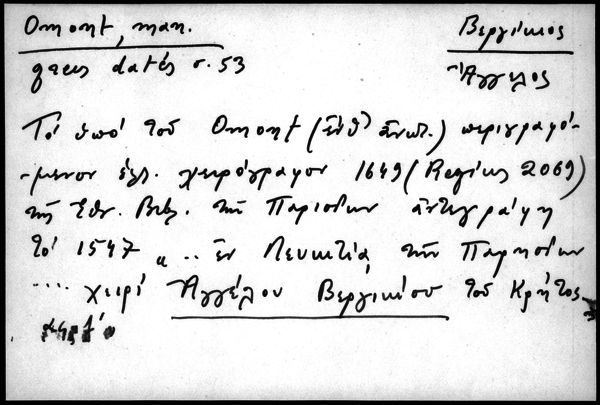 Omont, man.
Βεργίκιος
grecs datés σ. 53
Ἄγγελος
Τό ὑπό τοῦ Omont (ἔνθ' ἀνωτ.) περιγραφό-
-μενον ἑλλ. χειρόγραφον 1649 (Regius 2069)
τῆς Ἐθν. Βιβλ. τῆς Παρισίων ἀντεγράφη
τό 1547 „ .. ἐν Λευκετίᾳ τῶν Παρησίων
.... χειρί Ἀγγέλου Βεργικίου τοῦ Κρήτος